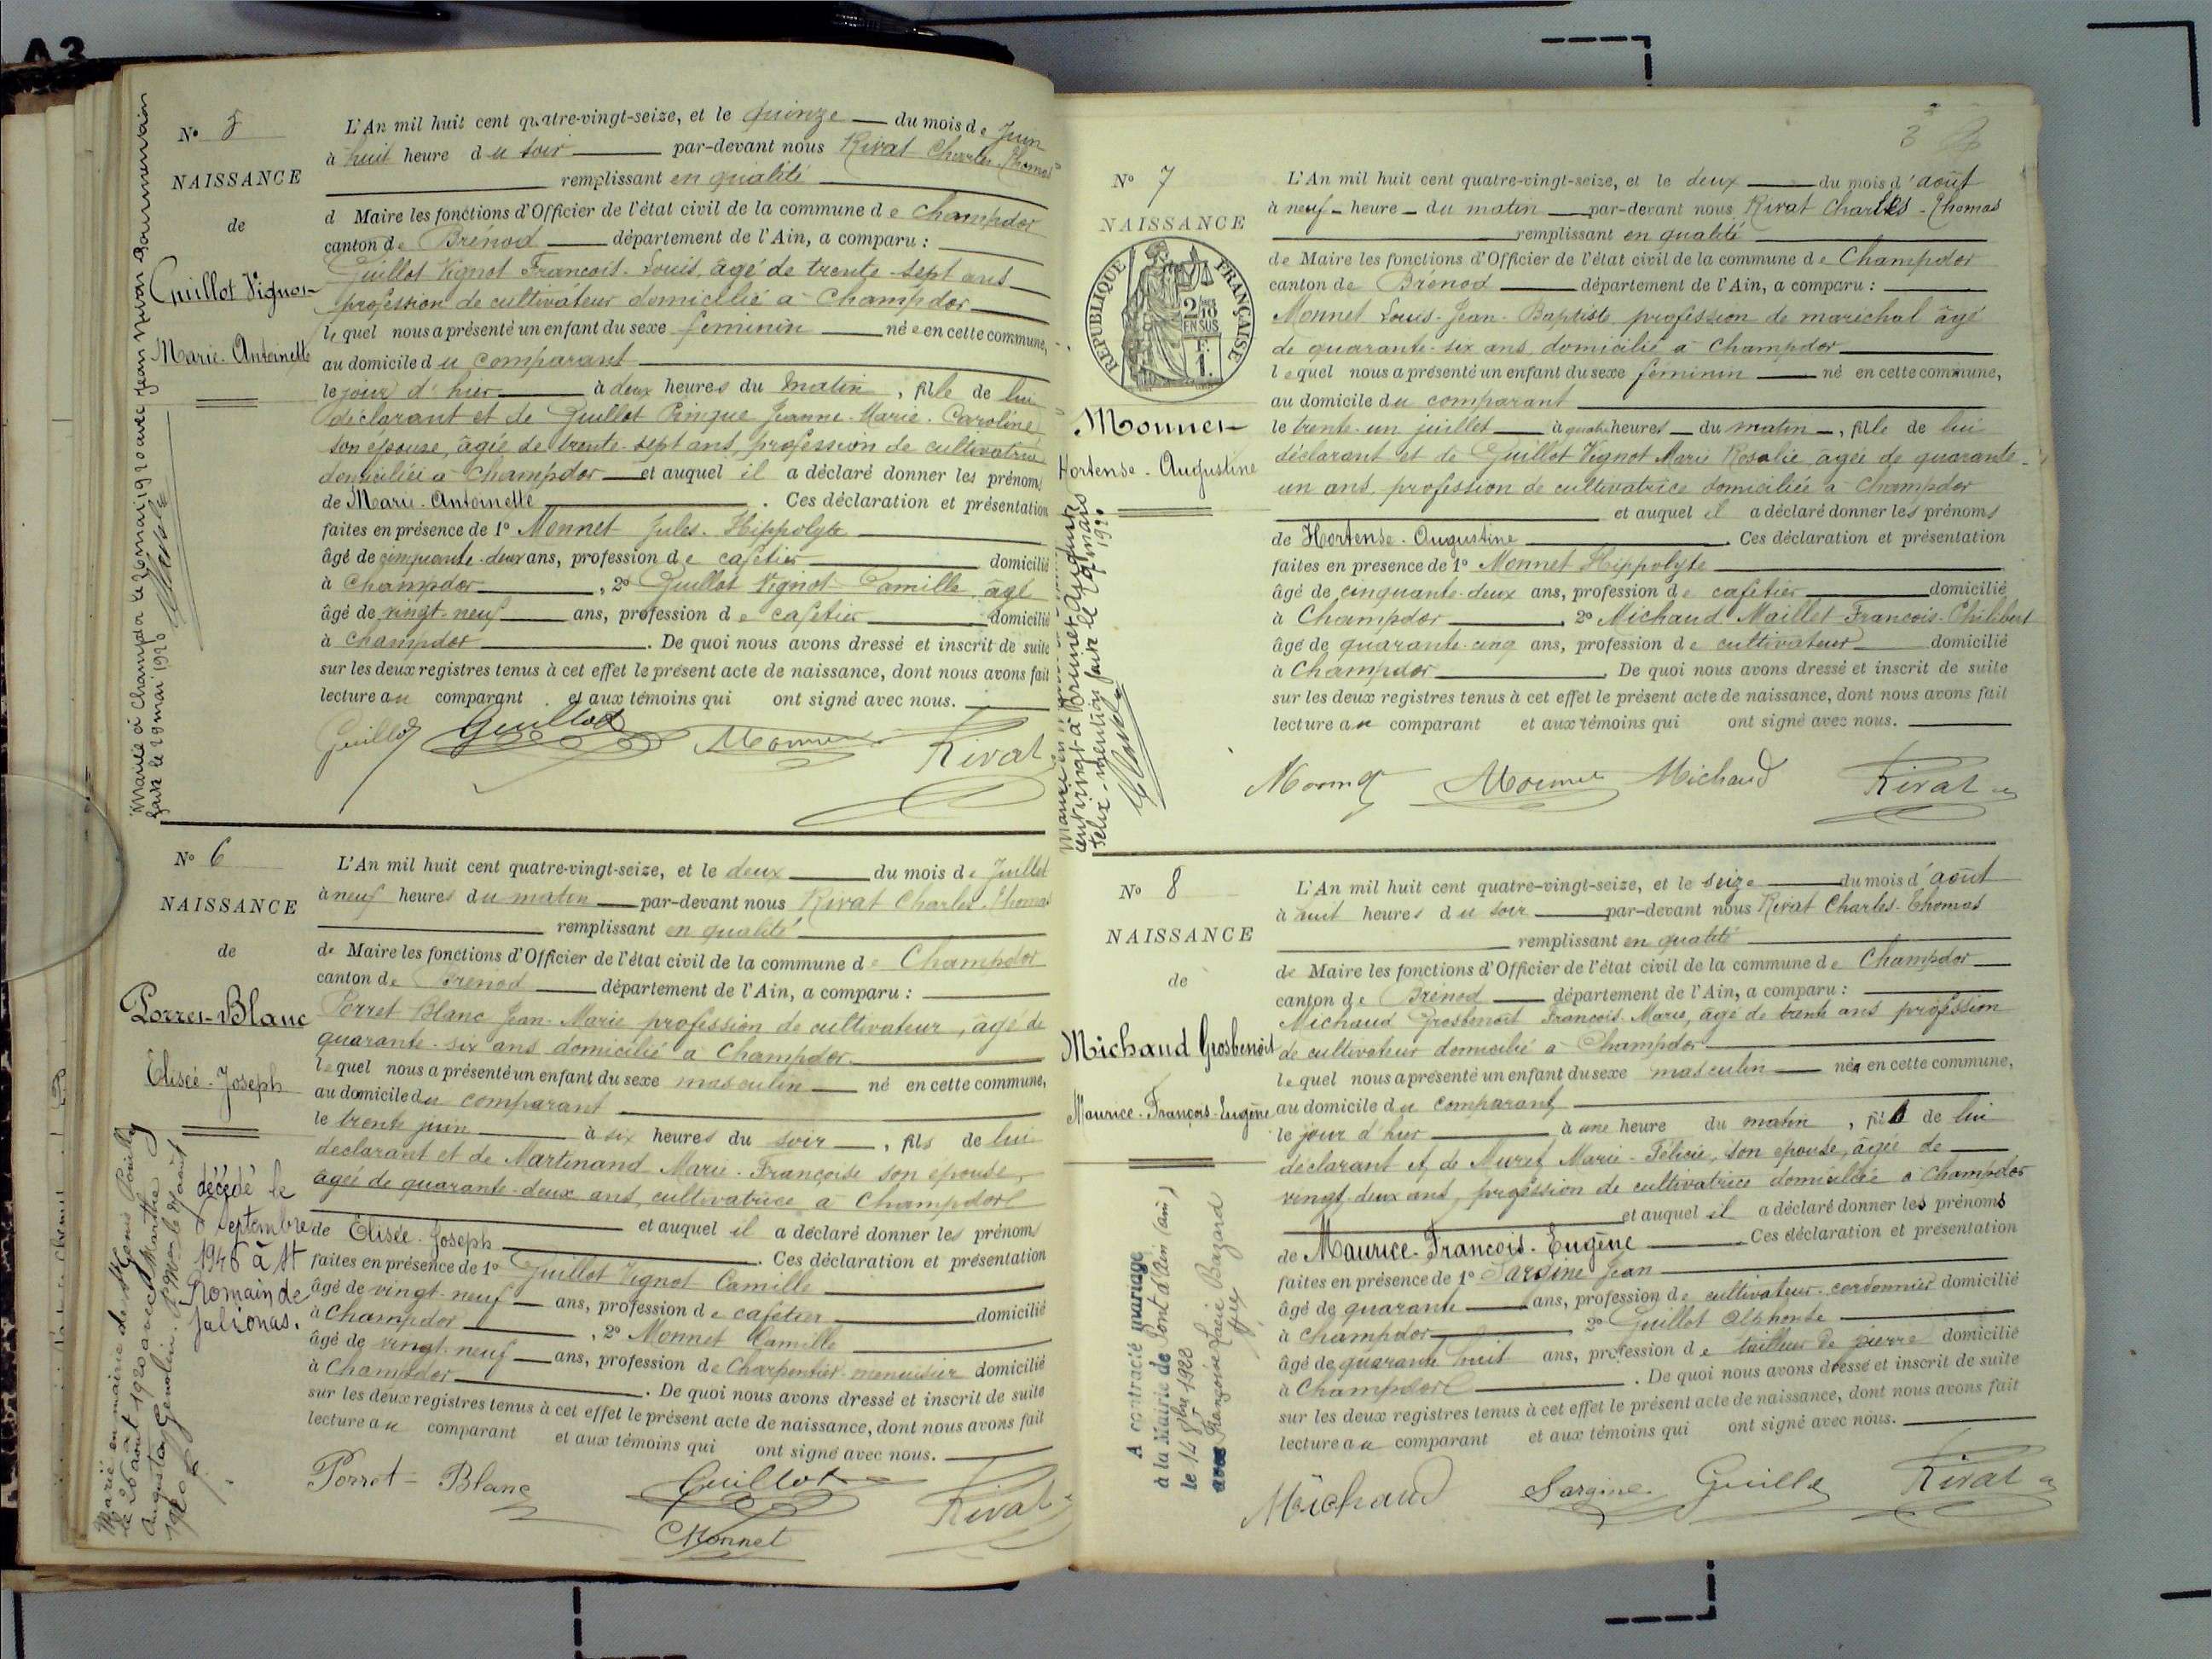 A3
N° 5
NAISSANCE
de
Guillot Vignot
Marie-Antoinette
L'An mil huit cent quatre-vingt-seize, et le quinze du mois de Juin
à huit heure du soir par-devant nous Rivat Charles-Thomas
remplissant en qualité
d Maire les fonctions d'Officier de l'état civil de la commune de Champdor
canton de Brénod département de l'Ain, a comparu :
Guillot Vignot François-Louis, âgé de trente-sept ans
profession de cultivateur domicilié à Champdor
lequel nous a présenté un enfant du sexe féminin née en cette commune,
au domicile du comparant
le jour d'hier à deux heures du matin, fille de lui
déclarant et de Guillot Pingue Jeanne-Marie-Caroline
son épouse, âgée de trente-sept ans, profession de cultivatrice
domiciliée à Champdor et auquel il a déclaré donner les prénoms
de Marie-Antoinette. Ces déclaration et présentation
faites en présence de 1° Monnet Jules-Hippolyte
âgé de cinquante-deux ans, profession de cafetier domicilié
à Champdor, 2° Guillot Vignot Camille âgé
âgé de vingt-neuf ans, profession de cafetier domicilié
à Champdor. De quoi nous avons dressé et inscrit de suite
sur les deux registres tenus à cet effet le présent acte de naissance, dont nous avons fait
lecture au comparant et aux témoins qui ont signé avec nous.
Guillot Guillot Monnet Rivat
Marié à Champdor le 26 mai 1920 avec Jean
faite le 29 mai 1920
N° 6
NAISSANCE
de
Porret-Blanc
Elisée-Joseph
L'An mil huit cent quatre-vingt-seize, et le deux du mois de Juillet
à neuf heures du matin par-devant nous Rivat Charles-Thomas
remplissant en qualité
de Maire les fonctions d'Officier de l'état civil de la commune de Champdor
canton de Brénod département de l'Ain, a comparu :
Porret Blanc Jean-Marie profession de cultivateur, âgé de
quarante-six ans domicilié à Champdor
lequel nous a présenté un enfant du sexe masculin né en cette commune,
au domicile du comparant
le trente juin à six heures du soir, fils de lui
déclarant et de Martinand Marie-Françoise son épouse,
âgée de quarante-deux ans, cultivatrice à Champdor
et auquel il a déclaré donner les prénoms
de Elisée-Joseph. Ces déclaration et présentation
faites en présence de 1° Guillot Vignot Camille
âgé de vingt-neuf ans, profession de cafetier domicilié
à Champdor, 2° Monnet Camille
âgé de vingt-neuf ans, profession de Charpentier-menuisier domicilié
à Champdor. De quoi nous avons dressé et inscrit de suite
sur les deux registres tenus à cet effet le présent acte de naissance, dont nous avons fait
lecture au comparant et aux témoins qui ont signé avec nous.
Porret-Blanc Guillot Rivat
CMonnet
Marié en mairie de St Genis Pouilly
le 26 août 1920 avec Marthe
Augusta
décédé le
septembre
1946 à St
Romain de
Jalionas.
3
N° 7
NAISSANCE
REPUBLIQUE FRANÇAISE
2/10
EN SUS
F.
1.
Monnet
Hortense-Augustine
L'An mil huit cent quatre-vingt-seize, et le deux du mois d'août
à neuf heure du matin par-devant nous Rivat Charles-Thomas
remplissant en qualité
de Maire les fonctions d'Officier de l'état civil de la commune de Champdor
canton de Brénod département de l'Ain, a comparu :
Monnet Louis-Jean-Baptiste profession de maréchal âgé
de quarante-six ans, domicilié à Champdor
lequel nous a présenté un enfant du sexe féminin né en cette commune,
au domicile du comparant
le trente-un juillet à quatre heures du matin, fille de lui
déclarant et de Guillot Vignot Marie Rosalie âgée de quarante-
un ans, profession de cultivatrice domiciliée à Champdor
et auquel il a déclaré donner les prénoms
de Hortense-Augustine. Ces déclaration et présentation
faites en présence de 1° Monnet Hippolyte
âgé de cinquante-deux ans, profession de cafetier domicilié
à Champdor, 2° Michaud Maillet François-Philibert
âgé de quarante-cinq ans, profession de cultivateur domicilié
à Champdor. De quoi nous avons dressé et inscrit de suite
sur les deux registres tenus à cet effet le présent acte de naissance, dont nous avons fait
lecture au comparant et aux témoins qui ont signé avec nous.
Monnet Monnet Michaud Rivat
cent vingt à Brunet
Félix-mention faite le mars
N° 8
NAISSANCE
de
Michaud Grosbenoit
Maurice-François-Eugène
L'An mil huit cent quatre-vingt-seize, et le seize du mois d'août
à huit heures du soir par-devant nous Rivat Charles-Thomas
remplissant en qualité
de Maire les fonctions d'Officier de l'état civil de la commune de Champdor
canton de Brénod département de l'Ain, a comparu :
Michaud Grosbenoit François-Marie, âgé de trente ans profession
de cultivateur domicilié à Champdor
lequel nous a présenté un enfant du sexe masculin né en cette commune,
au domicile du comparant
le jour d'hier à une heure du matin, fils de lui
déclarant et de Muret Marie-Félicie, son épouse, âgée de
vingt-deux ans, profession de cultivatrice domiciliée à Champdor
et auquel il a déclaré donner les prénoms
de Maurice-François-Eugène Ces déclaration et présentation
faites en présence de 1° Sargine Jean
âgé de quarante ans, profession de cultivateur-cordonnier domicilié
à Champdor 2° Guillot Alphonse
âgé de quarante huit ans, profession de tailleur de pierre domicilié
à Champdor. De quoi nous avons dressé et inscrit de suite
sur les deux registres tenus à cet effet le présent acte de naissance, dont nous avons fait
lecture au comparant et aux témoins qui ont signé avec nous.
Michaud Sargine Guillot Rivat
A contracté mariage
à la Mairie de Pont d'Ain (ain)
le 14 8bre 1928
avec Françoise Lucie Bazard